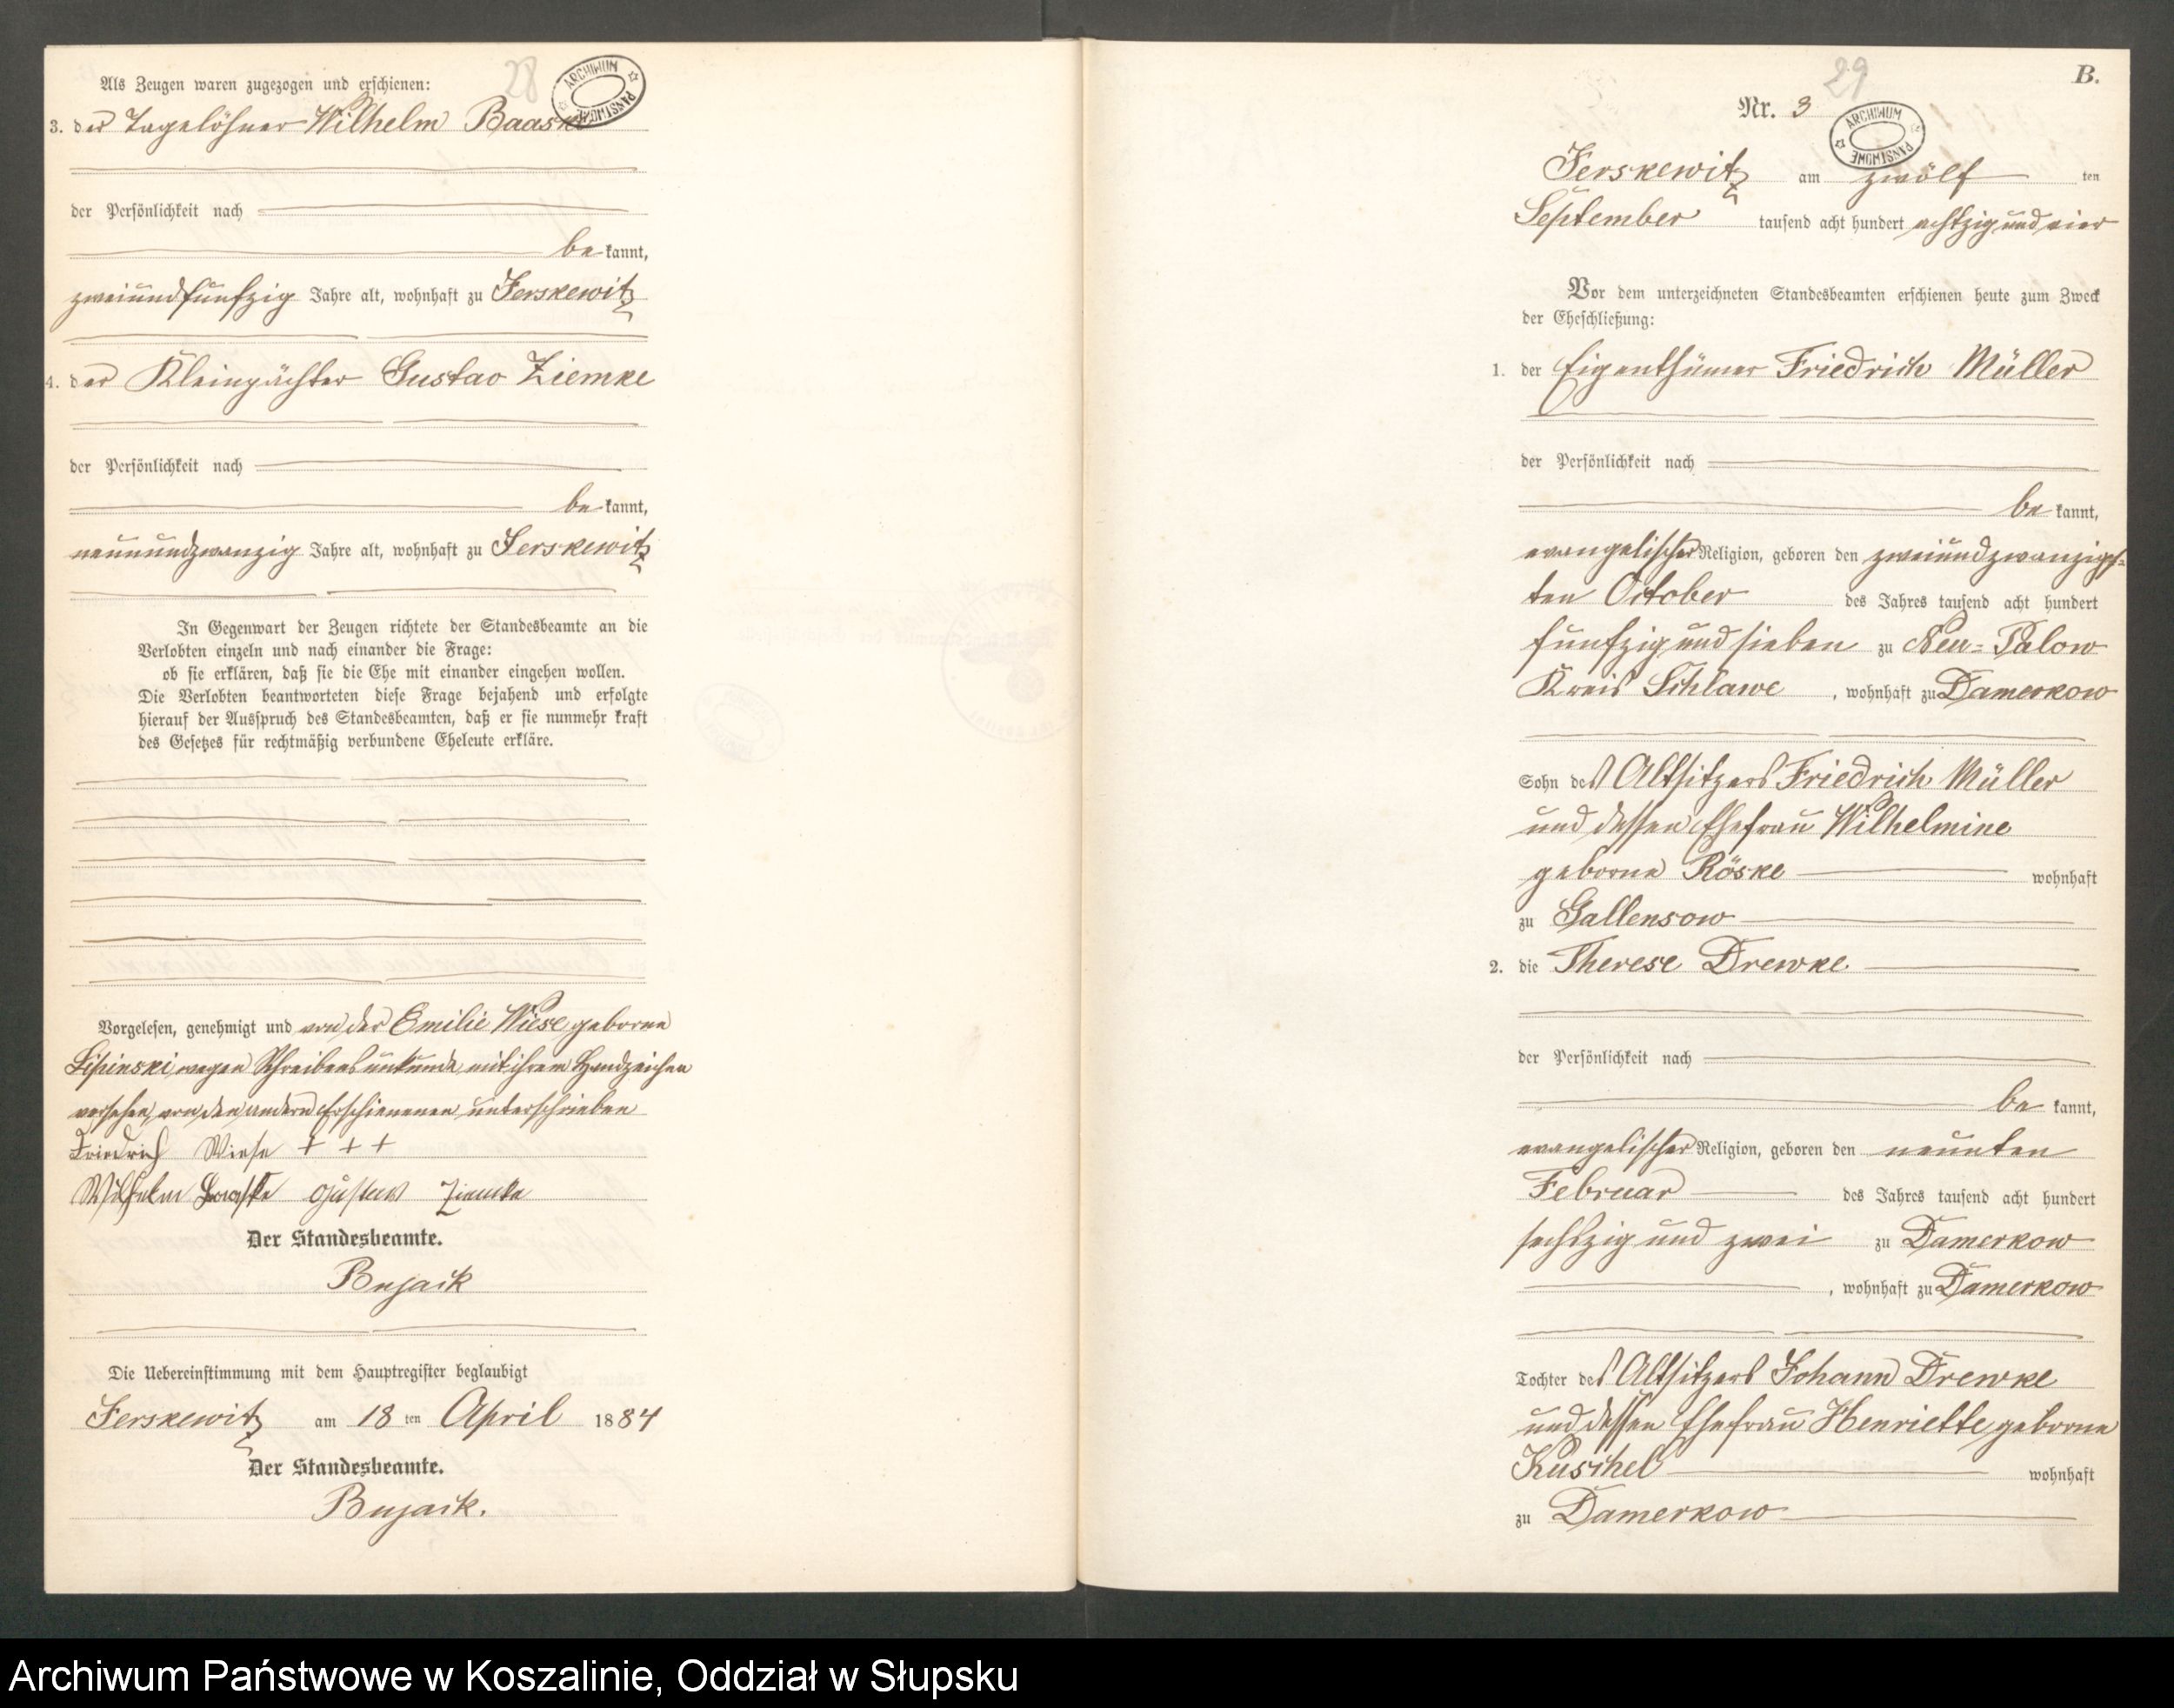 28
ARCHIWUM PAŃSTWOWE
Als Zeugen waren zugezogen und erschienen:
3. der Tagelöhner Wilhelm Baaske
der Persönlichkeit nach
be kannt,
zweiundfünfzig Jahre alt, wohnhaft zu Jerskewitz
4. der Kleinpächter Gustav Ziemke
der Persönlichkeit nach
be kannt,
neunundzwanzig Jahre alt, wohnhaft zu Jerskewitz
In Gegenwart der Zeugen richtete der Standesbeamte an die
Verlobten einzeln und nach einander die Frage:
ob sie erklären, daß sie die Ehe mit einander eingehen wollen.
Die Verlobten beantworteten diese Frage bejahend und erfolgte
hierauf der Ausspruch des Standesbeamten, daß er sie nunmehr kraft
des Gesetzes für rechtmäßig verbundene Eheleute erkläre.
Vorgelesen, genehmigt und von der Emilie Wiese geborne
Lipinski wegen Schreibensunkunde mit ihrem Handzeichen
versehen, von den andern Erschienenen unterschrieben
Friedrich Wiese + + +
Wilhelm Baaske Gustav Ziemke
Der Standesbeamte.
Bujack
Die Uebereinstimmung mit dem Hauptregister beglaubigt
Jerskewitz am 18 ten April 1884
Der Standesbeamte.
Bujack.
29
B.
Nr. 3
ARCHIWUM PAŃSTWOWE
Jerskewitz am zwölf ten
September tausend acht hundert achtzig und vier
Vor dem unterzeichneten Standesbeamten erschienen heute zum Zweck
der Eheschließung:
1. der Eigenthümer Friedrich Müller
der Persönlichkeit nach
be kannt,
evangelischer Religion, geboren den zweiundzwanzigs-
ten October des Jahres tausend acht hundert
fünfzig und sieben zu Neu-Palow
Kreis Schlawe, wohnhaft zu Damerkow
Sohn des Altsitzers Friedrich Müller
und dessen Ehefrau Wilhelmine
geborne Röske wohnhaft
zu Gallensow
2. die Therese Drewke.
der Persönlichkeit nach
be kannt,
evangelischer Religion, geboren den neunten
Februar des Jahres tausend acht hundert
sechszig und zwei zu Damerkow
, wohnhaft zu Damerkow
Tochter des Altsitzers Johann Drewke
und dessen Ehefrau Henriette geborne
Kuschel wohnhaft
zu Damerkow
Archiwum Państwowe w Koszalinie, Oddział w Słupsku